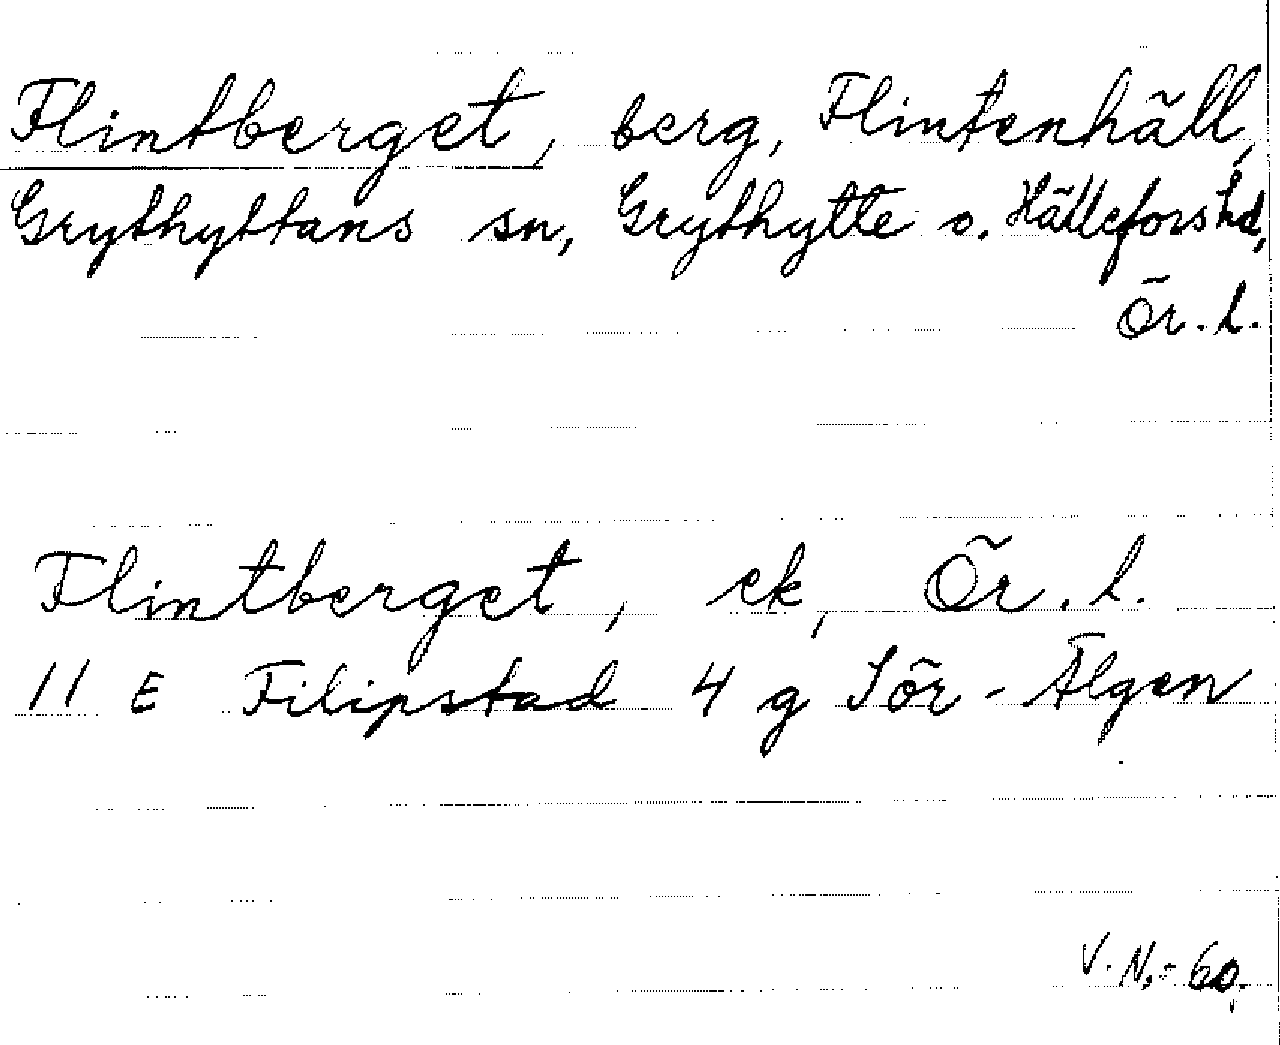 Flintberget, berg, Flintenhäll,
Grythyttans sn, Grythytte o. Hällefors hd,
Ör. l.
Flintberget, ek, Ör. l.
11 E Filipstad 4 g Sör-Älgen
V. N. - 60.